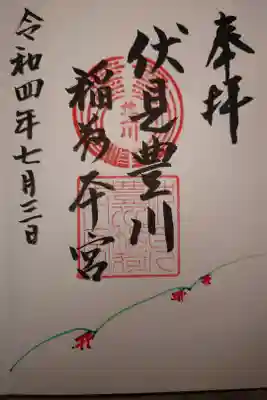 奉拝
伏見豊川
稲荷本宮
令和四年七月三日